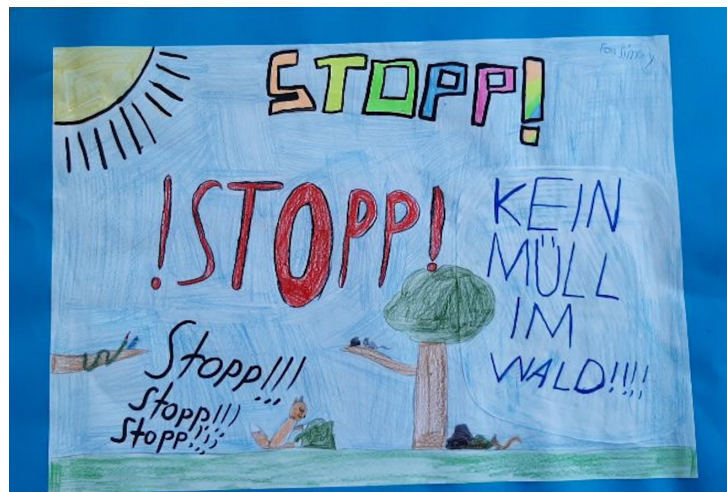 STOPP!
!STOPP!
KEIN
MÜLL
IM
WALD!!!!
Stopp!!!
Stopp!!!
Stopp!!!